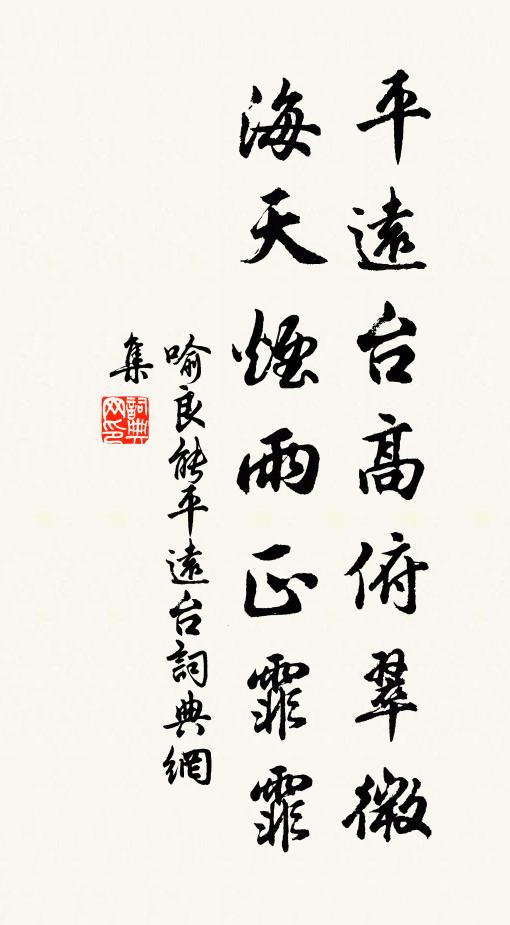 平遠台高俯翠微
海天煙雨正霏霏
喻良能平遠台詞典網
集
詞典
网印